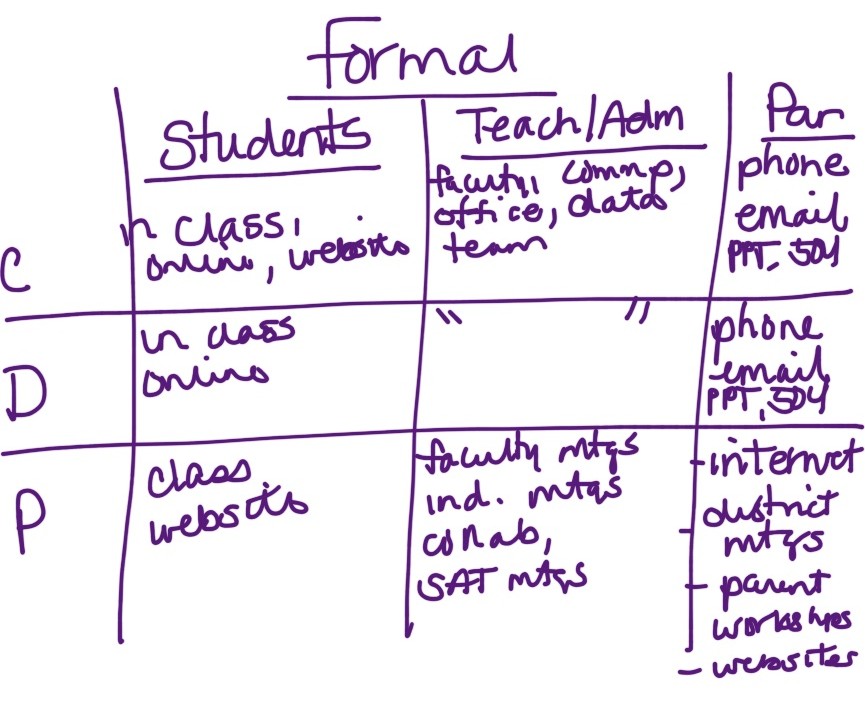 Formal
Students
Teach/Adm
Par
C
in class,
online, website
faculty, comp,
office, data
team
phone
email
PPT, 504
D
in class
online
" "
phone
email
PPT, 504
P
class
website
faculty mtgs
ind. mtgs
collab,
SAT mtgs
- internet
- district
mtgs
- parent
workshops
- websites